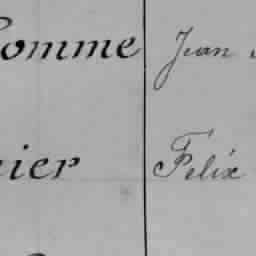 omme Jean
ier Félix